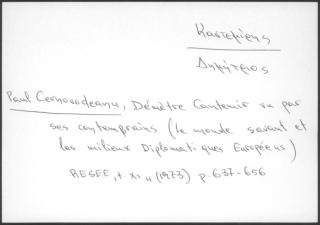 Καντεμίρης
Δημήτριος
Paul Cernovodeanu, Démètre Cantemir vu par
ses contemprains (Le monde savant et
les milieux Diplomatiques Européens)
RESEE, t. XI,, (1973) p. 637-656